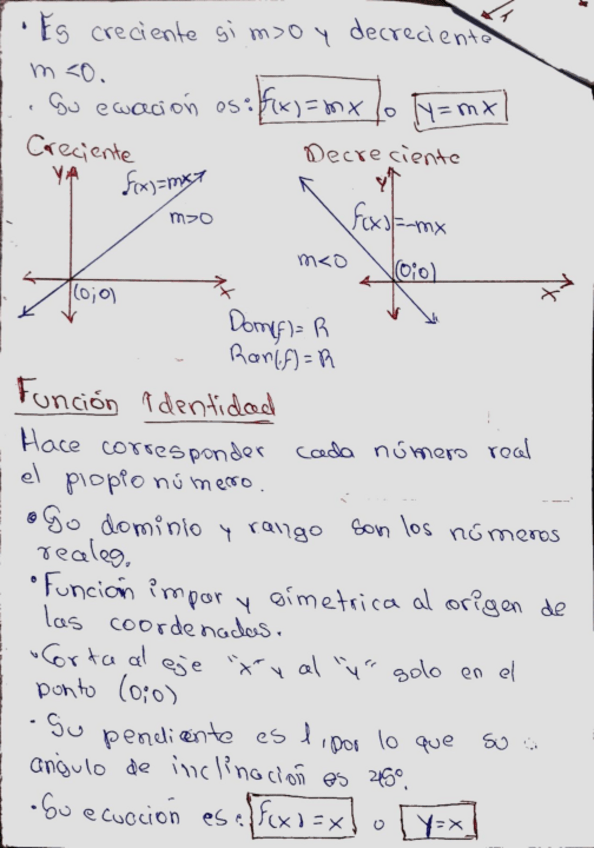 · Es creciente si m>0 y decreciente
m <0.
· Su ecuación es: f(x)=mx o y=mx
Creciente Decreciente
y f(x)=mx m>0 (0;0) x
y f(x)=-mx m<0 (0;0) x
Dom(f)= R
Ran(f)= R
Función Identidad
Hace corresponder cada número real
el propio número.
• Su dominio y rango son los números
reales.
• Función impar y simetrica al origen de
las coordenadas.
• Corta al eje "x" y al "y" solo en el
punto (0;0)
· Su pendiente es 1, por lo que su
angulo de inclinación es 45º.
· Su ecuación es: f(x)=x o y=x